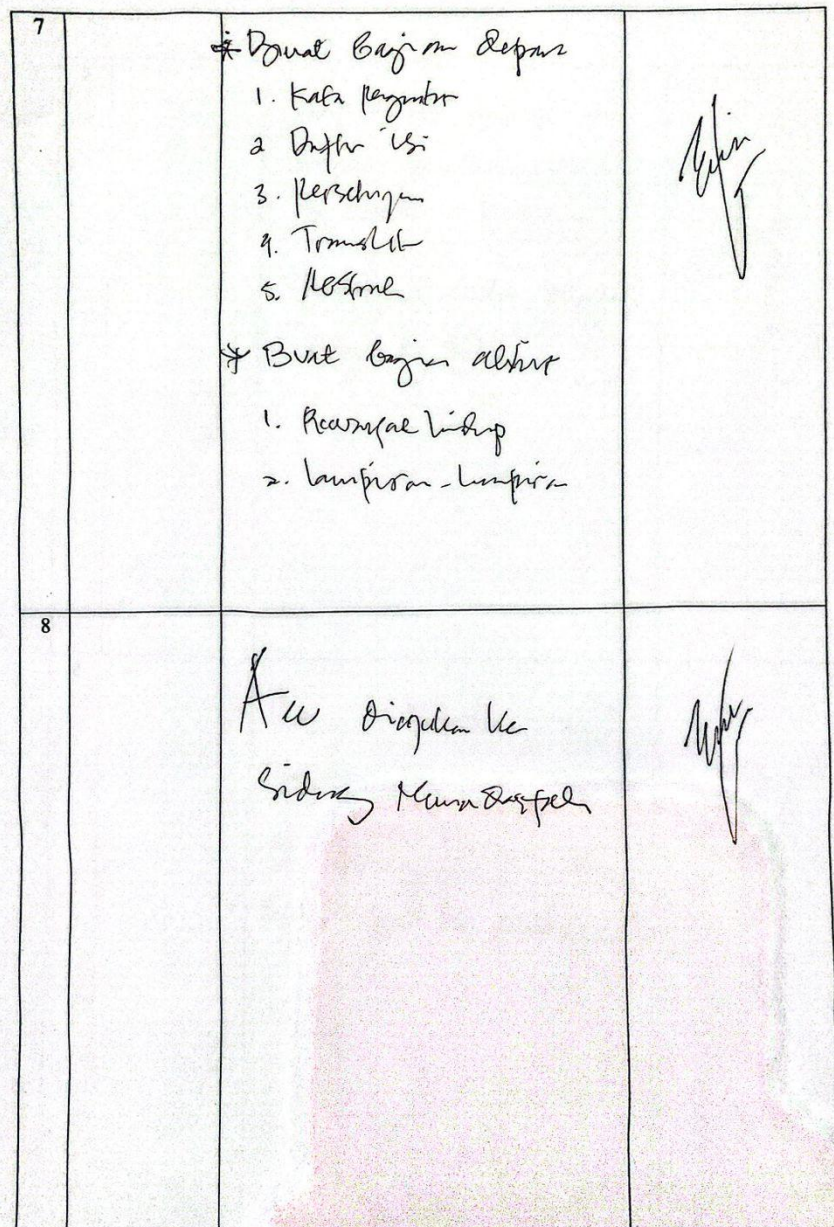 7
* Buat bagian depan
1. Kata pengantar
2 Daftar isi
3. Persetujuan
4. Translit
5.
* Buat bagian akhir
1. Riwayat hidup
2. Lampiran-lampiran
8
Acc diajukan ke
Sidang Munaqasyah